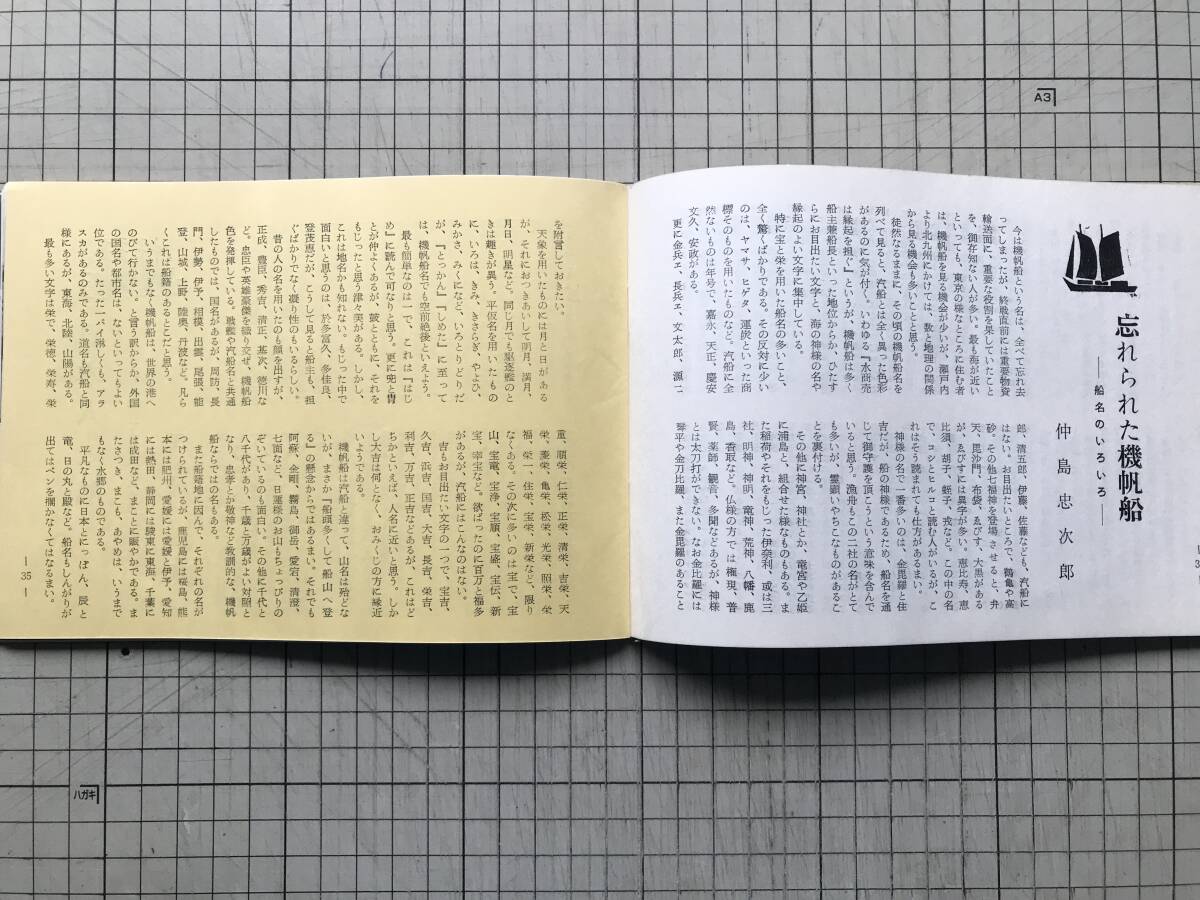 忘れられた機帆船
――船名のいろいろ――
仲島忠次郎
今は機帆船という名は、全べて忘れ去
ってしまったが、終戦直前には重要物資
輸送面に、重要な役割を果していたこと
を、御存知ない人が多い。最も海が近い
といっても、東京の様なところに住む者
は、機帆船を見る機会が少いが、瀬戸内
より北九州にかけては、数と地理の関係
から見る機会も多いことと思う。
徒然なるままに、その頃の機帆船名を
列べて見ると、汽船とは全く異った色彩
があるのに気が付く。いわゆる『水商売
は縁起を担ぐ』というが、機帆船は多く
船主兼船長といった地位からか、ひたす
らにお目出たい文字と、海の神様の名や
縁起のよい文字に集中している。
特に宝と栄を用いた船名の多いこと、
全く驚くばかりである。その反対に少い
のは、ヤマサ、ヒゲタ、運炭といった商
標そのものを用いたものなど。汽船に全
然ないものは年号で、嘉永、天正、慶安
文久、安政がある。
更に金兵ヱ、長兵ヱ、文太郎、源一
郎、清五郎、伊藤、佐藤なども、汽船に
はない。お目出たいところで、鶴亀や高
砂。その他七福神を登場させると、弁
天、毘沙門、布袋、ゑびす、大黒がある
が、ゑびすには異字が多い。恵比寿、恵
比須、胡子、蛭子、戎など。この中の名
で、コシとヒルコと読む人がいるが、こ
れはそう読まれても仕方があるまい。
神様の名で一番多いのは、金毘羅と住
吉だが、船の神様であるため、船名を通
じて御守護を頂こうという意味を含んで
いると思う。漁船もこの二社の名がとて
も多いが、霊顕いやちこなものがあるこ
とを裏付ける。
その他に神宮、神社とか、竜宮や乙姫
に浦島と、組合せた様なものもある。ま
た稲荷やそれをもじった伊奈利、或は三
社、明神、神明、竜神、荒神、八幡、鹿
島、香取など、仏様の方では権現、普
賢、薬師、観音、多聞などあるが、神様
とは太刀打ができない。なお金比羅には
琴平や金刀比羅、また金毘羅のあること
を附言しておきたい。
天象を用いたものには月と日がある
が、それにおつきあいして明月、満月、
月日、明星など。同じ月でも駆逐艦のと
きは趣きが異う。平仮名を用いたもの
に、いろは、きみ、きさらぎ、やよひ、
みかさ、みくになど、いろとりどりだ
が、『とっかん』『しめた』に至って
は、機帆船名でも空前絶後といえよう。
最も簡単なのは一で、これは『はじ
め』に読んで可なりと思う。更に兜と冑
とが仲よくあるが、鼓とともに、それを
もじったと思う津々美がある。しかし、
これは地名かも知れない。もじった中で
面白いと思うのは、於多富久、多佳良、
登茂恵だが、こうして見ると船主も、担
ぐばかりでなく凝り性のもいるらしい。
昔の人の名を用いたのも顔を出すが、
正成、豊臣、秀吉、清正、基次、徳川な
ど。忠臣や英雄豪傑を織り交ぜ、機帆船
色を発揮している。戦艦や汽船名と共通
したものでは、国名があるが、周防、長
門、伊勢、伊予、相模、出雲、尾張、能
登、山城、上野、陸奥、丹波など。凡ら
くこれは船籍のあるとこだと思う。
いうまでもなく機帆船は、世界の港へ
のびて行かない、と言う訳からか、外国
の国名や都市名は、ないといってもよい
位である。たった一パイ淋しくも、アラ
スカがあるのみである。道名も汽船と同
様にあるが、東海、北陸、山陽がある。
最も多い文字は栄で、栄徳、栄寿、栄
童、順栄、仁栄、正栄、清栄、吉栄、天
栄、葉栄、亀栄、松栄、光栄、照栄、栄
福、栄一、住栄、宝栄、新栄など、限り
なくある。その次に多いのは宝で、宝
山、宝竜、宝浄、宝順、宝盛、宝伝、新
宝、幸宝など。欲ばったのに百万と福多
があるが、汽船にはこんなのはない。
吉もお目出たい文字の一つで、宝吉、
久吉、浜吉、国吉、大吉、長吉、栄吉、
利吉、万吉、正吉などあるが、これはど
ちかといえば、人名に近いと思う。しか
し大吉は何となく、おみくじの方に縁近
いようである。
機帆船は汽船と違って、山名は殆どな
いが、まさか『船頭多くして船山へ登
る』の懸念からではあるまい。それでも
阿蘇、金剛、霧島、御岳、愛宕、清澄、
七面など、日蓮様のお山もちょっぴりの
ぞいているのも面白い。その他に千代と
八千代があり、千歳と万歳がよい対照と
なり、忠孝とか敬神など教訓的な、機帆
船ならではの名もある。
また船籍地に因んで、それぞれの名が
つけられているが、鹿児島には桜島、熊
本には肥州、愛媛には愛媛と伊予、愛知
には熱田、静岡には駿東に東海、千葉に
は成田など、まことに賑やかである。ま
たさつき、まこも、あやめは、いうまで
もなく水郷のものである。
平凡なものに日本とにっぽん、辰と
竜、日の丸と殿など。船名もしんがりが
出てはペンを欄かなくてはなるまい。
― 35 ―
A3
ハガキ